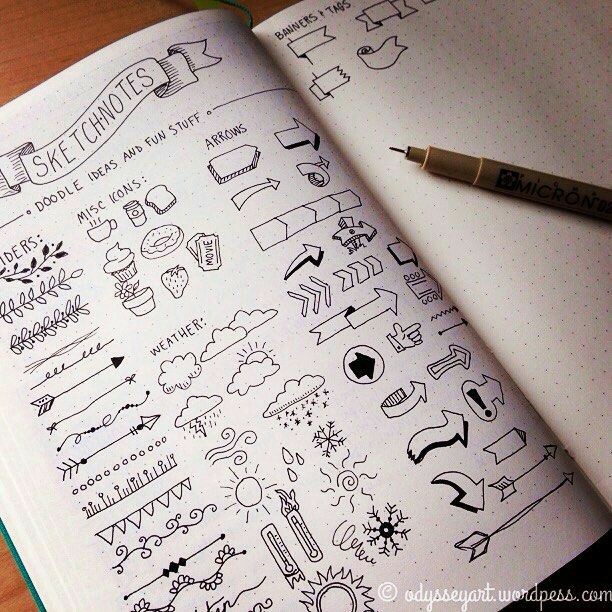 SKETCHNOTES
DOODLE IDEAS AND FUN STUFF
IDERS:
MISC ICONS:
MOVIE
WEATHER:
ARROWS
BANNERS & TAGS
MICRON
© odysseyart.wordpess.com